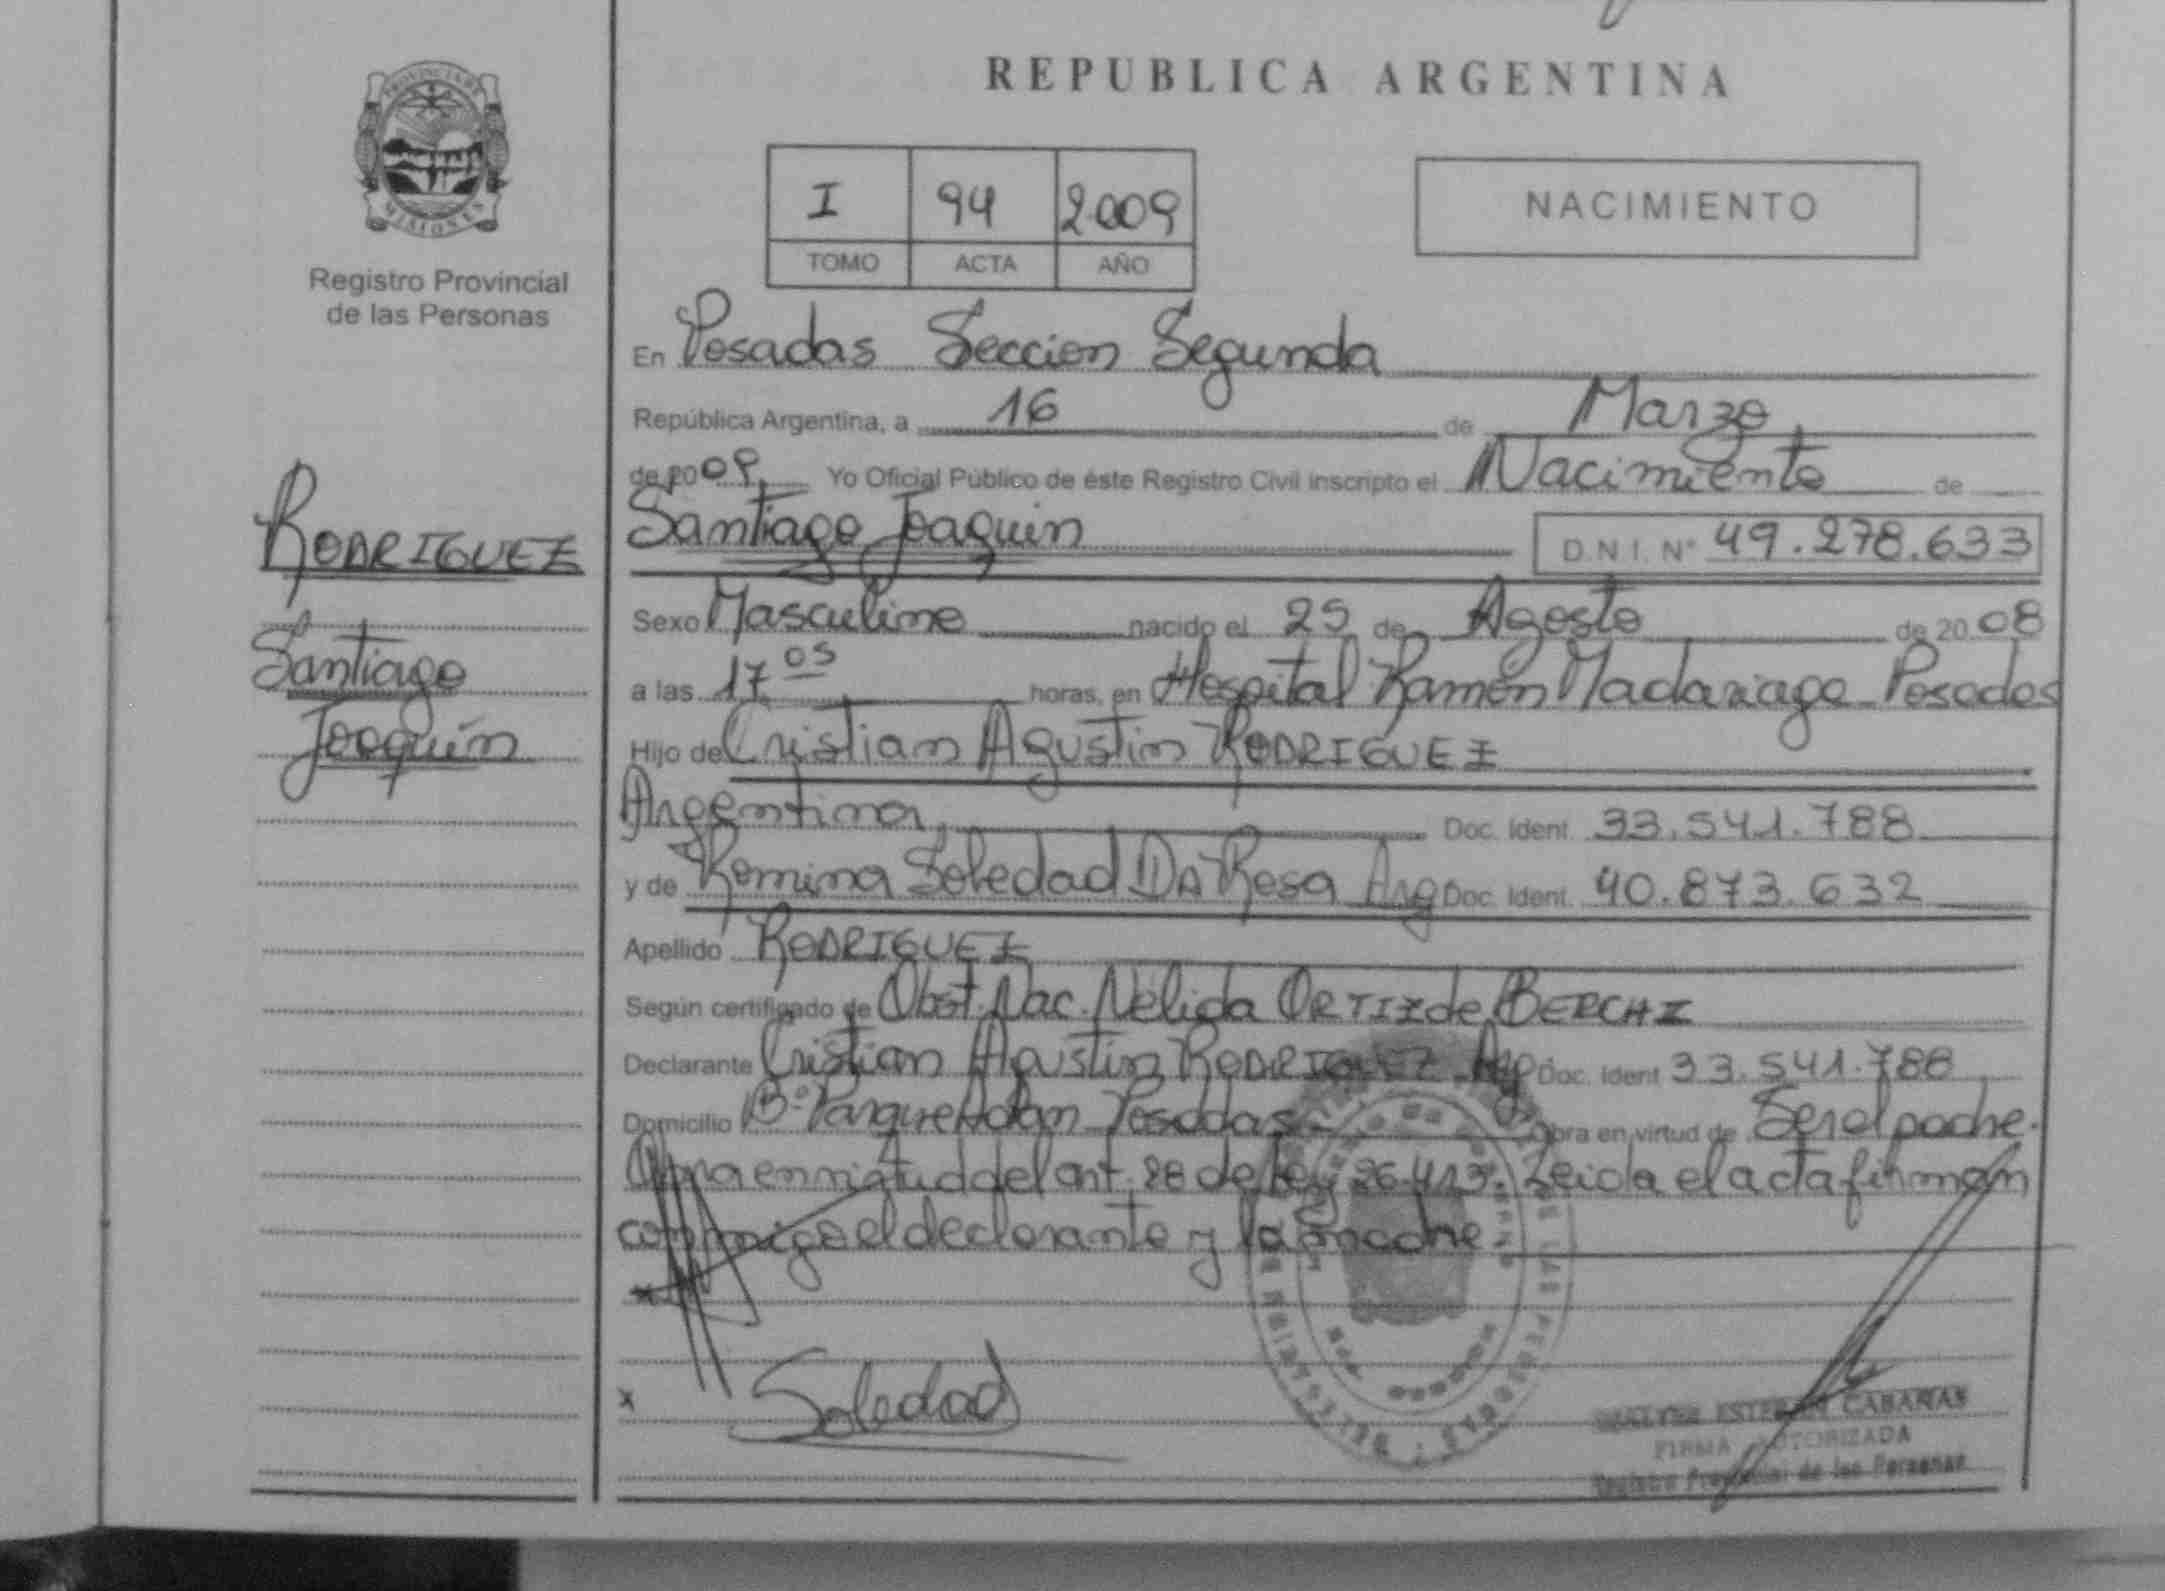 REPUBLICA ARGENTINA
PROVINCIA DE
MISIONES
Registro Provincial
de las Personas
I 94 2009
TOMO ACTA AÑO
NACIMIENTO
En Posadas Seccion Segunda
República Argentina, a 16 de Marzo
de 2009. Yo Oficial Público de éste Registro Civil inscripto el Nacimiento de
Santiago Joaquin D.N.I. Nº 49.278.633
RODRIGUEZ
Santiago
Joaquín
Sexo Masculino nacido el 25 de Agosto de 2008
a las 17 05 horas, en Hospital Ramón Madariaga - Posadas
Hijo de Cristian Agustin RODRIGUEZ
Argentina, Doc. Ident. 33.541.788
y de Romina Soledad DA Rosa Arg Doc. Ident. 40.873.632
Apellido RODRIGUEZ
Según certificado de Obst. Nac. Nélida ORTIZ de BERCHI
Declarante Cristian Agustin RODRIGUEZ Arg Doc. Ident 33.541.788
Domicilio Bº Parque Adam Posadas Obra en virtud de Ser el padre.
Obra en virtud del art. 28 de Ley 26.413. Leida el acta firman
conmigo el declarante y la madre.
x
x Soledad
ESTEBAN CABAÑAS
FIRMA AUTORIZADA
Registro Provincial de las Personas